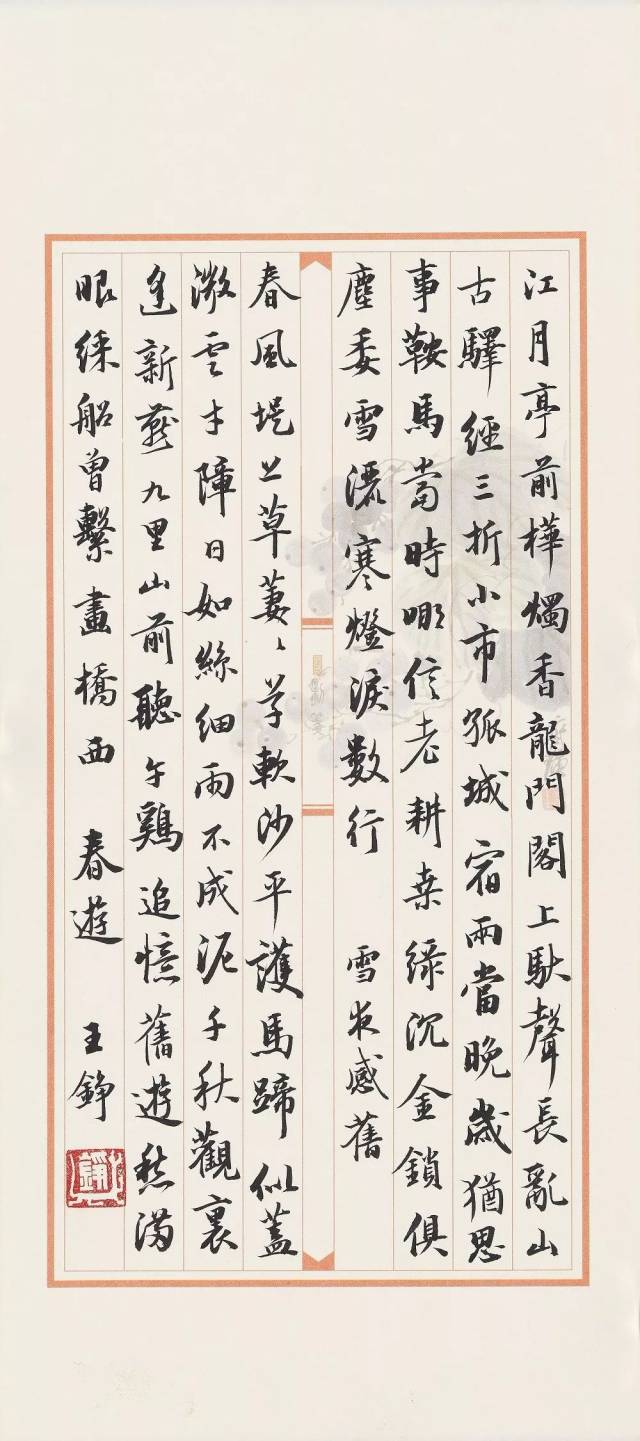 江月亭前樺燭香龍門閣上馱聲長亂山
古驛經三折小市孤城宿兩當晚歲猶思
事鞍馬當時那信老耕桒綠沉金鎖俱
塵委雪灑寒燈淚數行 雪夜感舊
春風堤上草萋〻草軟沙平護馬蹄似蓋
微雲才障日如絲細雨不成泥千秋觀裏
逢新燕九里山前聽午鷄追憶舊遊愁滿
眼綵船曾繫畫橋西 春遊 王錚